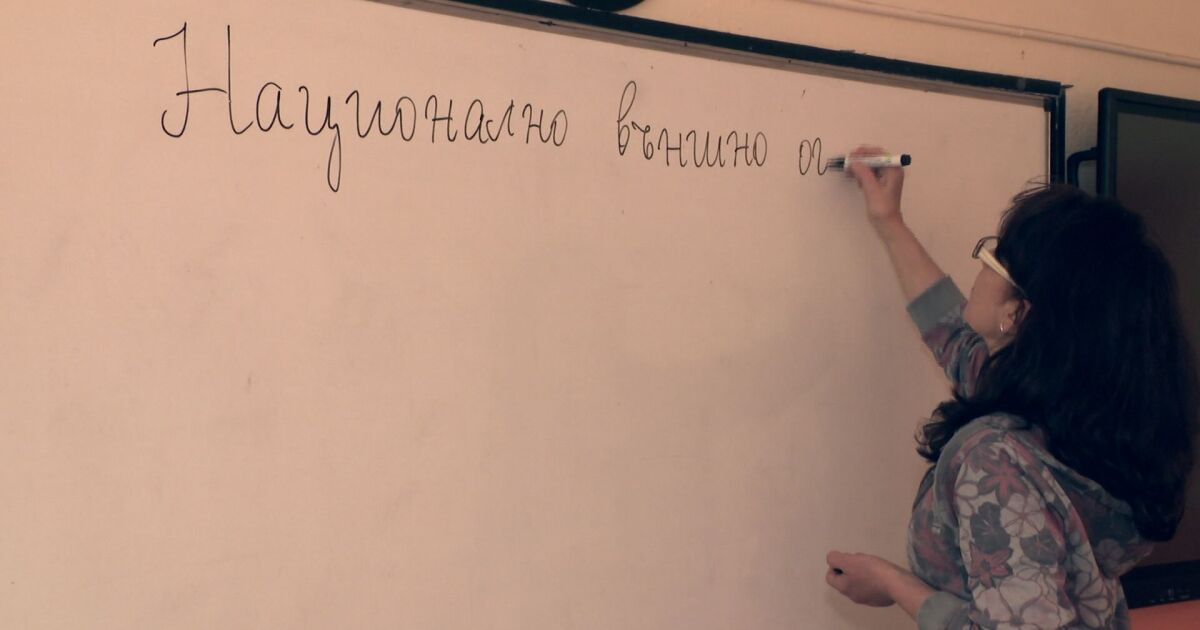 Национално външно оц